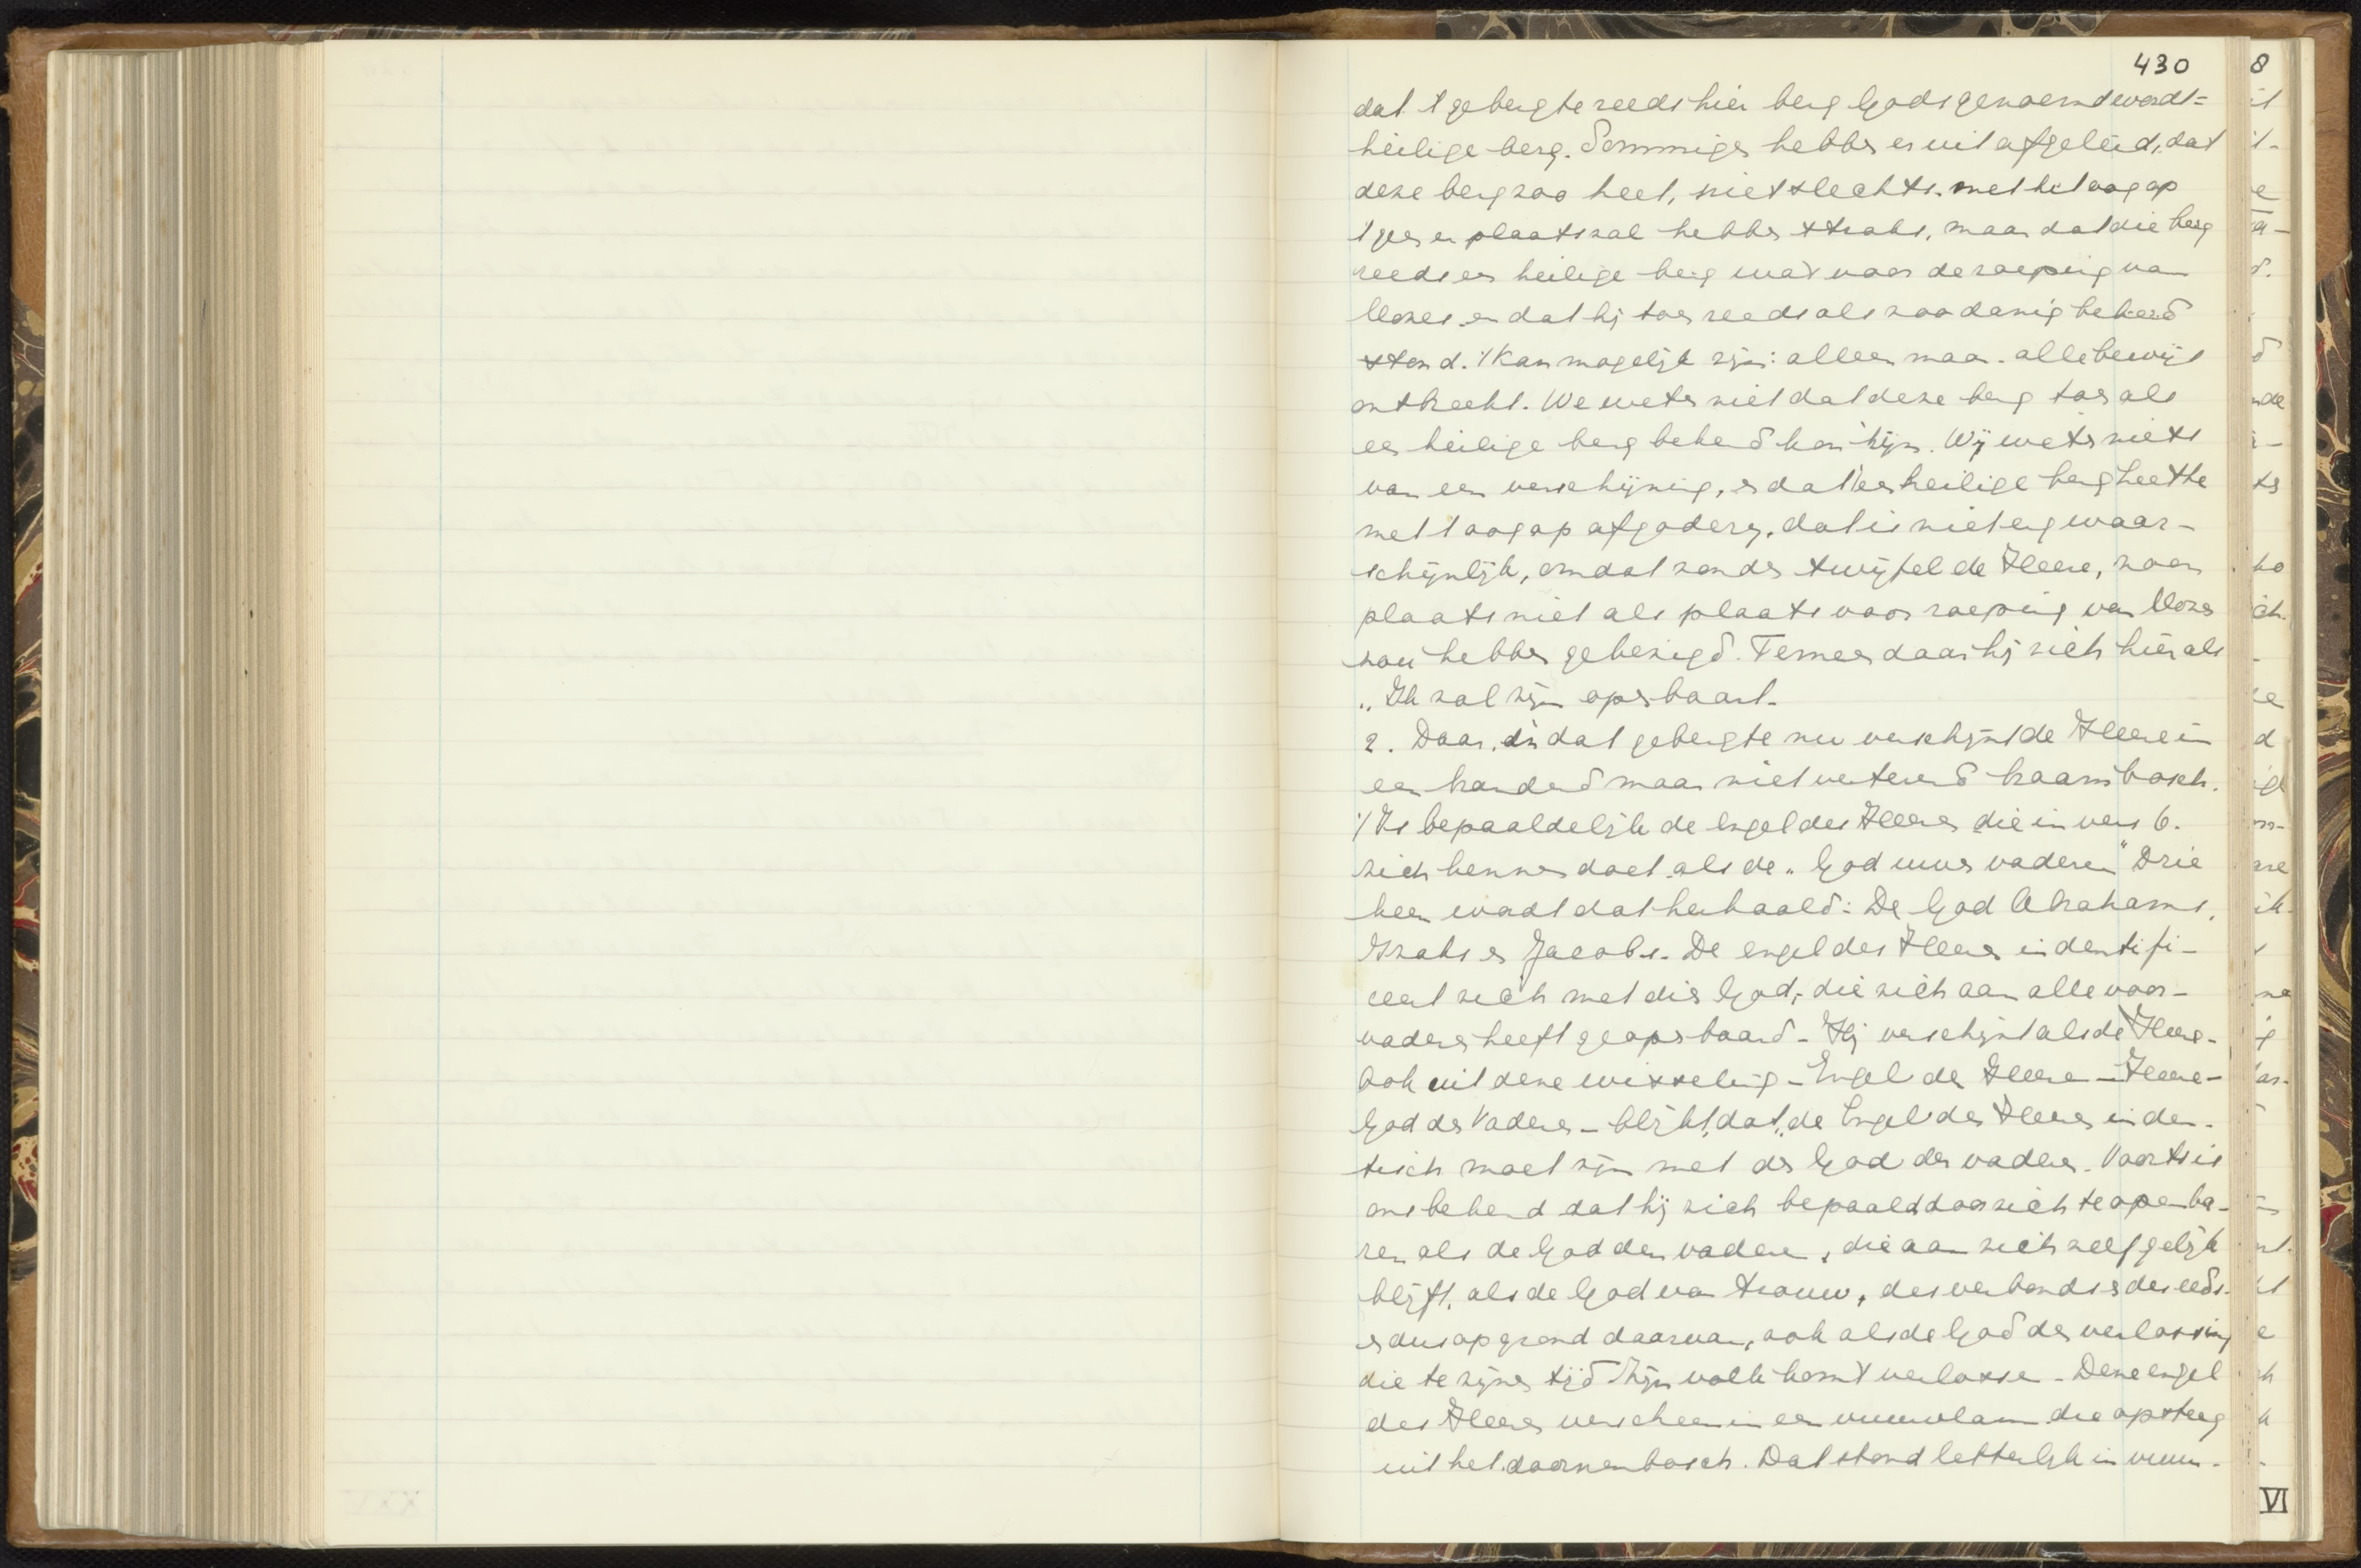 430
dat 't gebergte reeds hier berg Gods genoemd wordt =
heilige berg. Sommigen hebben er uit afgeleid, dat
deze berg zoo heet, niet slechts met het oog op
'tgeen er plaats zal hebben straks, maar dat die berg
reeds een heilige berg was voor de roeping van
Mozes en dat hij toen reeds als zoodanig bekend
stond. 't Kan mogelijk zijn: alleen maar alle bewijs
ontbreekt. We weten niet dat deze berg toen als
een heilige berg bekend kon zijn. Wij weten niets
van een verschijning, en dat 't een heilige berg heette
met 't oog op afgoderij, dat is niet erg waar-
schijnlijk, omdat zonder twijfel de Heere, zoo'n
plaats niet als plaats voor roeping van Mozes
zou hebben gebezigd. Temeer daar hij zich hier als
„Ik zal zijn openbaart.
2. Daar in dat gebergte nu verschijnt de Heere in
een brandend maar niet verterend braambosch.
't Is bepaaldelijk de Engel des Heeren die in vers 6.
zich kennen doet als de „God uwer vaderen" Drie
keer wordt dat herhaald: De God Abrahams,
Izaks en Jacobs. De engel des Heeren indentifi-
ceert zich met dien God, die zich aan alle voor-
vaderen heeft geopenbaard - Hij verschijnt als de Heere -
Ook uit deze wisseling - Engel des Heeren - Heere -
God der Vaderen - blijkt, dat de Engel des Heeren inden-
tisch moet zijn met den God der vaderen. Voorts is
ons bekend dat hij zich bepaald door zich te openba-
ren als de God der vaderen, die aan zich zelf gelijk
blijft, als de God van trouw, des verbonds en des eeds
en dus op grond daarvan, ook als de God der verlossing
die te zijner tijd Zijn volk komt verlossen - Deze engel
des Heeren verscheen in een vuurvlam die opsteeg
uit het doornenbosch. Dat stond letterlijk in vuur.
8
VI